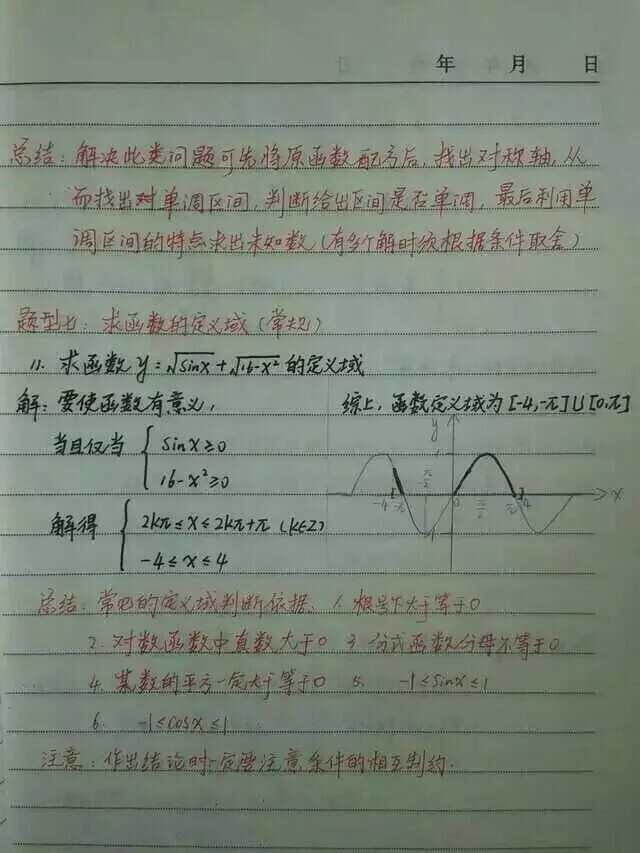 年 月 日
总结：解决此类问题可先将原函数配方后，找出对称轴，从
而找出对单调区间，判断给出区间是否单调，最后利用单
调区间的特点求出未知数（有多个解时须根据条件取舍）
题型七：求函数的定义域（常规）
11. 求函数 y=√sinx+√16-x² 的定义域
解：要使函数有意义，
当且仅当 { sinx≥0
16-x²≥0
解得 { 2kπ≤x≤2kπ+π (k∈Z)
-4≤x≤4
综上，函数定义域为[-4,-π]∪[0,π]
y
1
-4 -π -π/2 0 π/2 π 4 x
-1
总结：常见的定义域判断依据：1. 根号下大于等于0
2. 对数函数中真数大于0 3. 分式函数分母不等于0
4. 某数的平方一定大于等于0 5. -1≤sinx≤1
6. -1≤cosx≤1
注意：作出结论时一定要注意条件的相互制约.